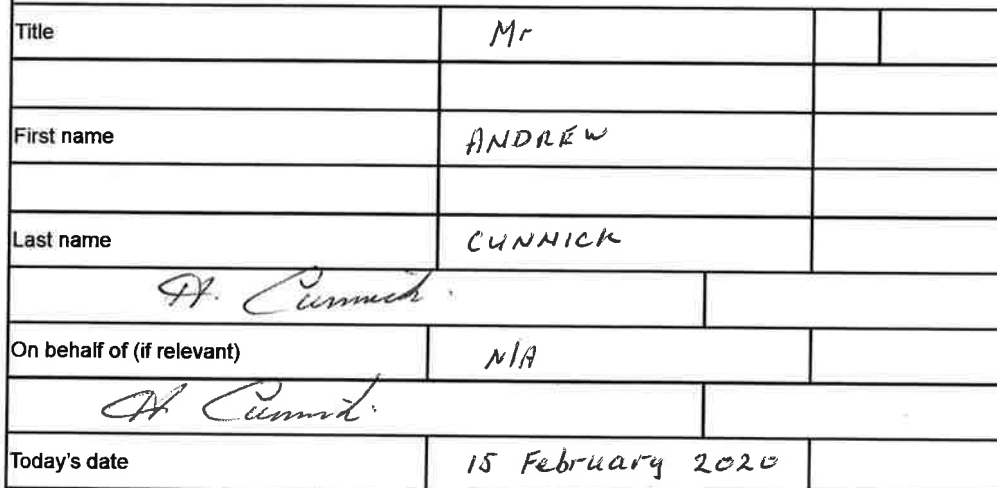 Title Mr
First name ANDREW
Last name CUNNICK
A. Cunnick.
On behalf of (if relevant) N/A
A Cunnick.
Today's date 15 February 2020